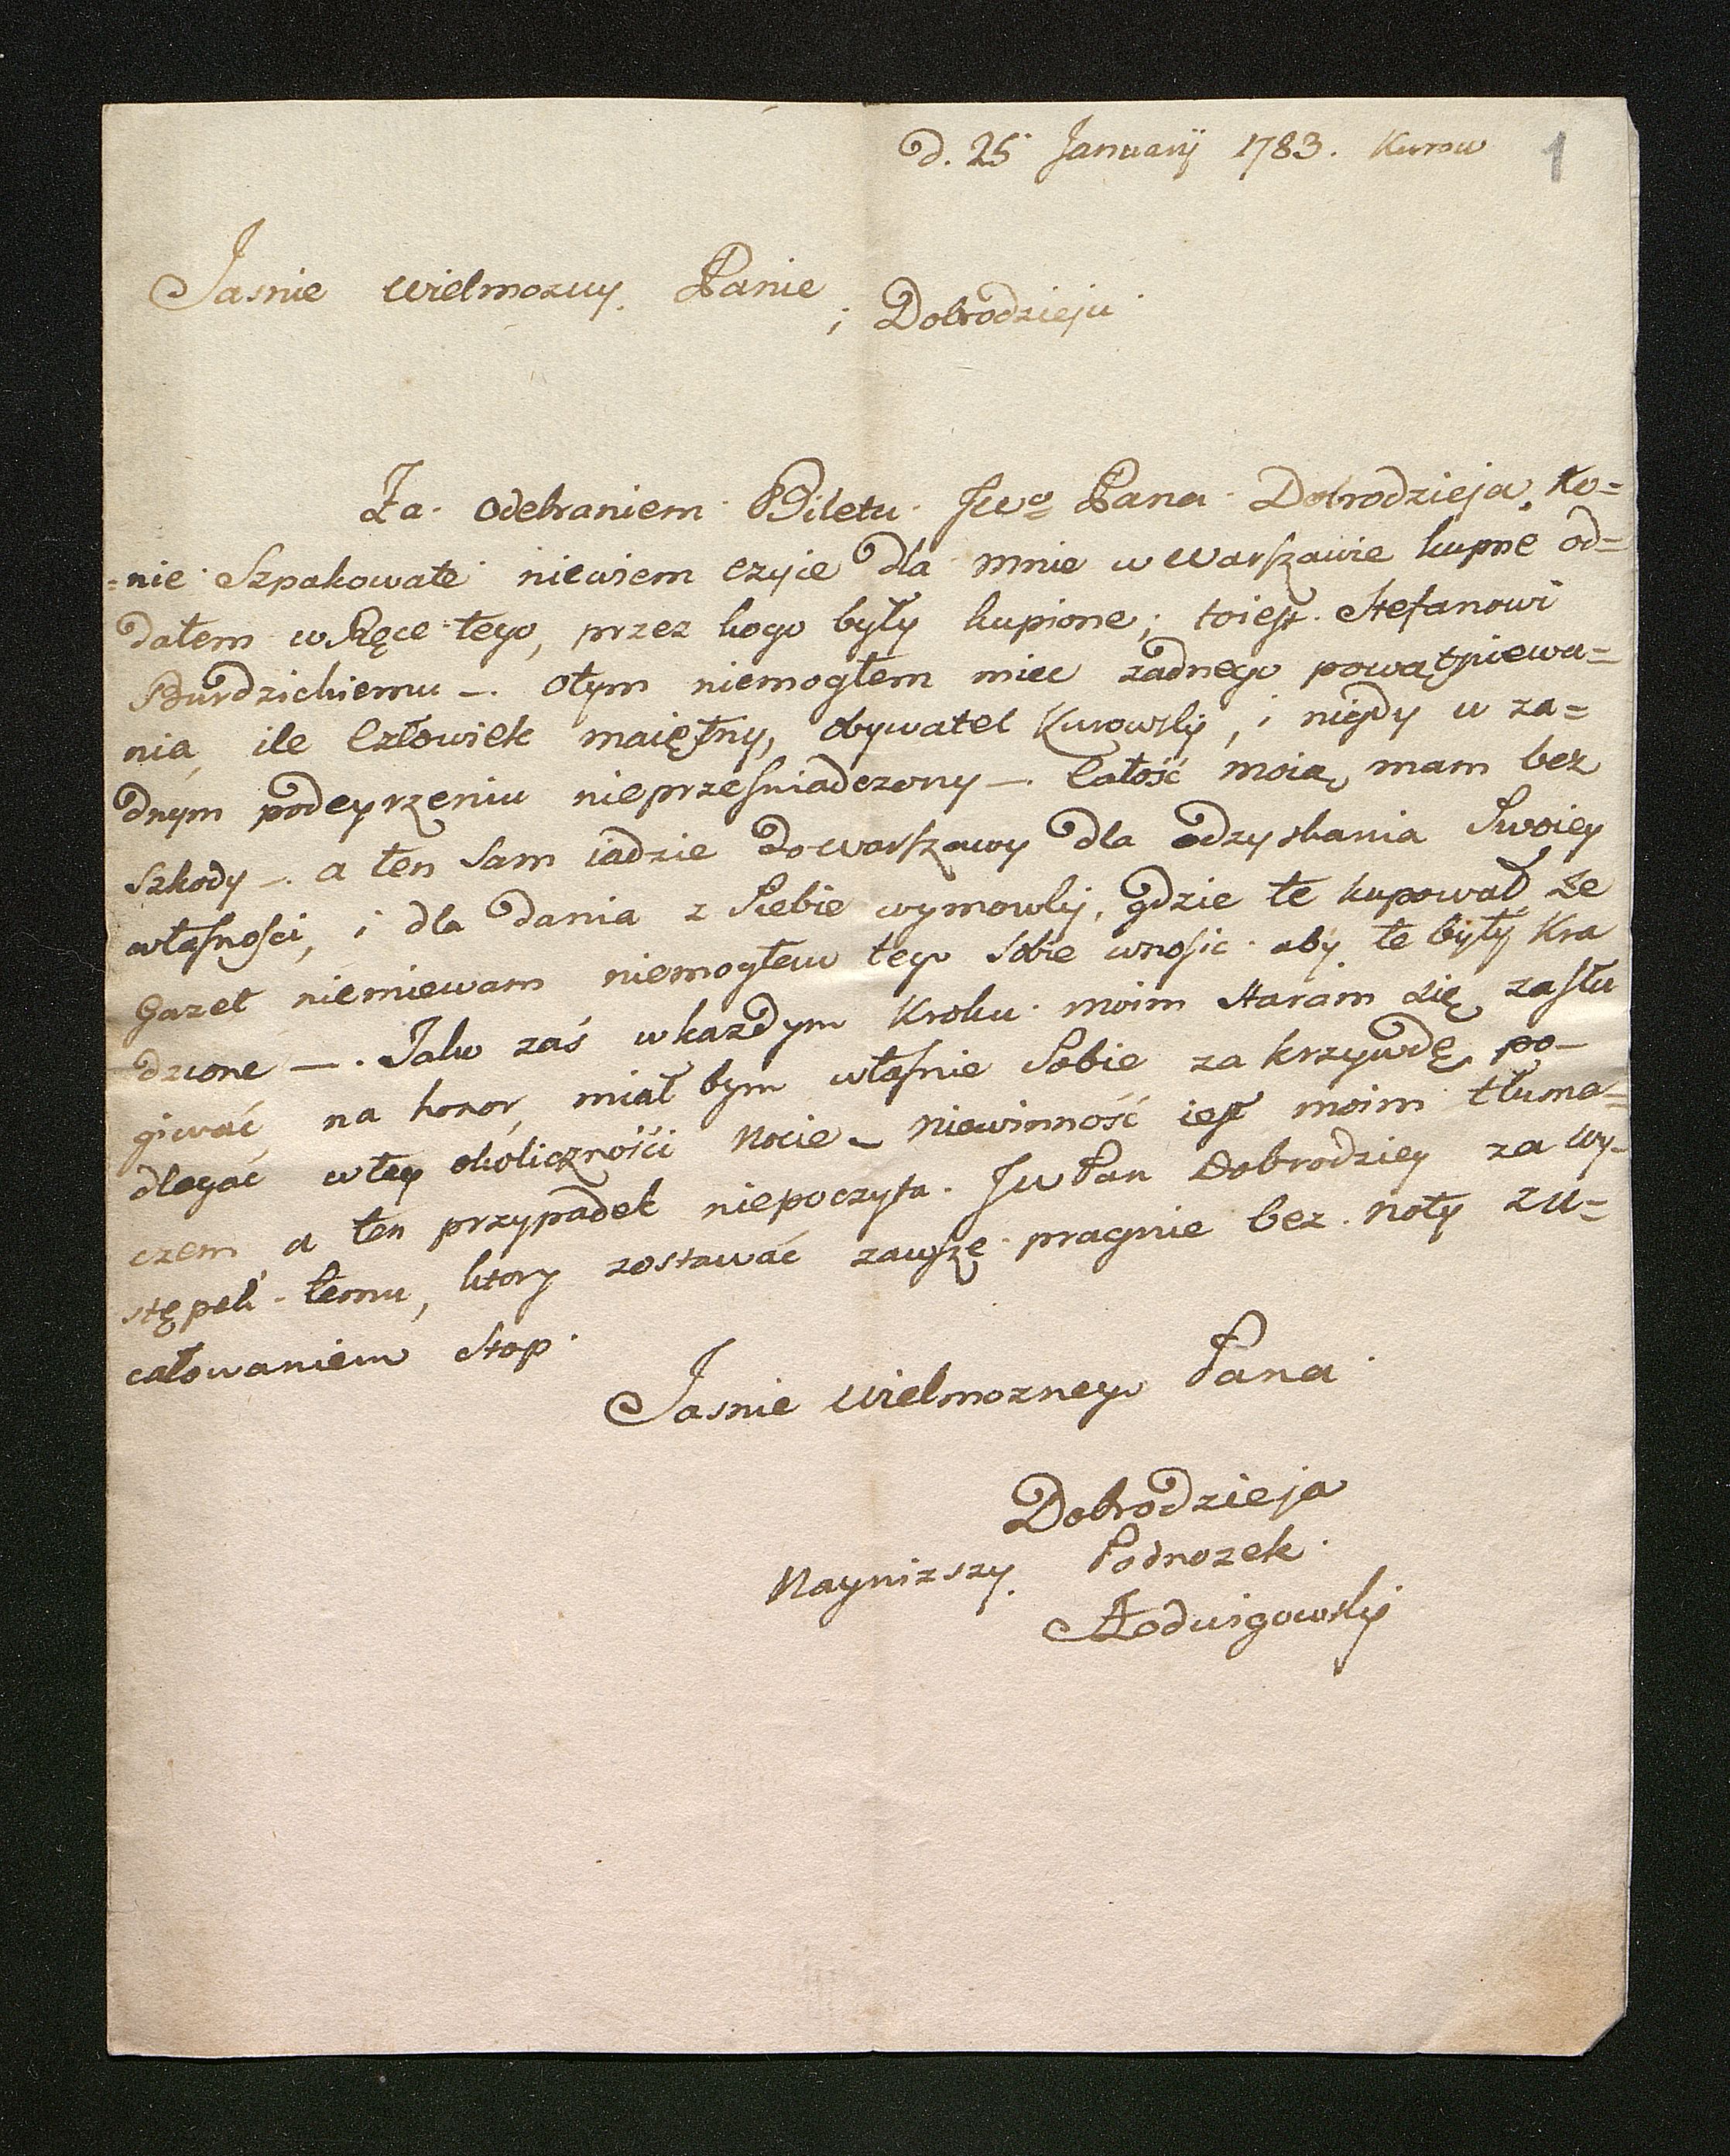 d. 25 Januarij 1783. Kurow
1
Jasnie Wielmozny Panie
i Dobrodzieju
Za odebraniem Biletu JWo Pana Dobrodzieja, Ko=
=nie Szpakowate niewiem czyie dla mnie w Warszawie kupne od=
dałem w Ręce tego, przez kogo były kupione; toiest Stefanowi
Burdzickiemu —. otym niemogłem miec zadnego powątpiewa=
nia, ile Człowiek maiętny, obywatel Kurowski, i nigdy w za=
dnym podeyrzeniu nieprzeswiadczony —. Całość moią mam bez
szkody —. a ten sam iadzie do Warszawy dla odzyskania Swoiey
własnosci, i dla dania z Siebie wymowki, gdzie te kupował, że
Gazet niemiewam niemogłem tego sobie wnosic aby te były kra
dzione —. Jako zaś w kazdym Kroku moim staram się zasłu
giwać na honor, miał bym własnie Sobie za krzywdę po-
dlegać w tey okolicznośći Nocie — niewinność iest moim tłuma=
czem, a ten przypadek niepoczyta JW Pan Dobrodziey za wy-
stępek temu, ktory zostawać zawszę pragnie bez noty z u=
całowaniem Stop
Jasnie Wielmoznego Pana
Dobrodzieja
Naynizszy Podnozek